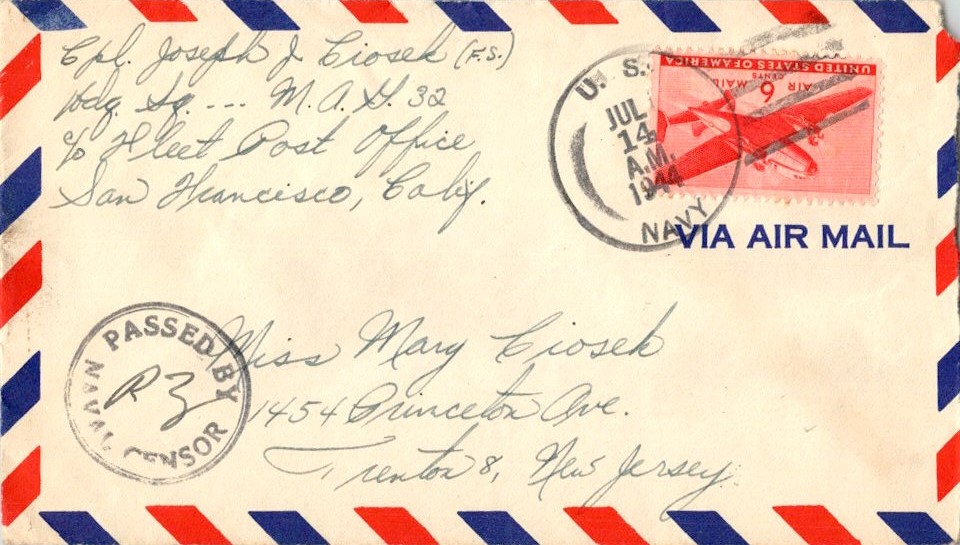 Cpl. Joseph J. Ciosek (F.S.)
Hdq. Sq. --- M.A.G. 32
c/o Fleet Post Office
San Francisco, Calif.
U. S. NAVY
JUL
14
A.M.
1944
UNITED STATES OF AMERICA
6
CENTS
AIR
MAIL
VIA AIR MAIL
PASSED BY
NAVAL CENSOR
Miss Mary Ciosek
1454 Princeton Ave.
Trenton 8, New Jersey.